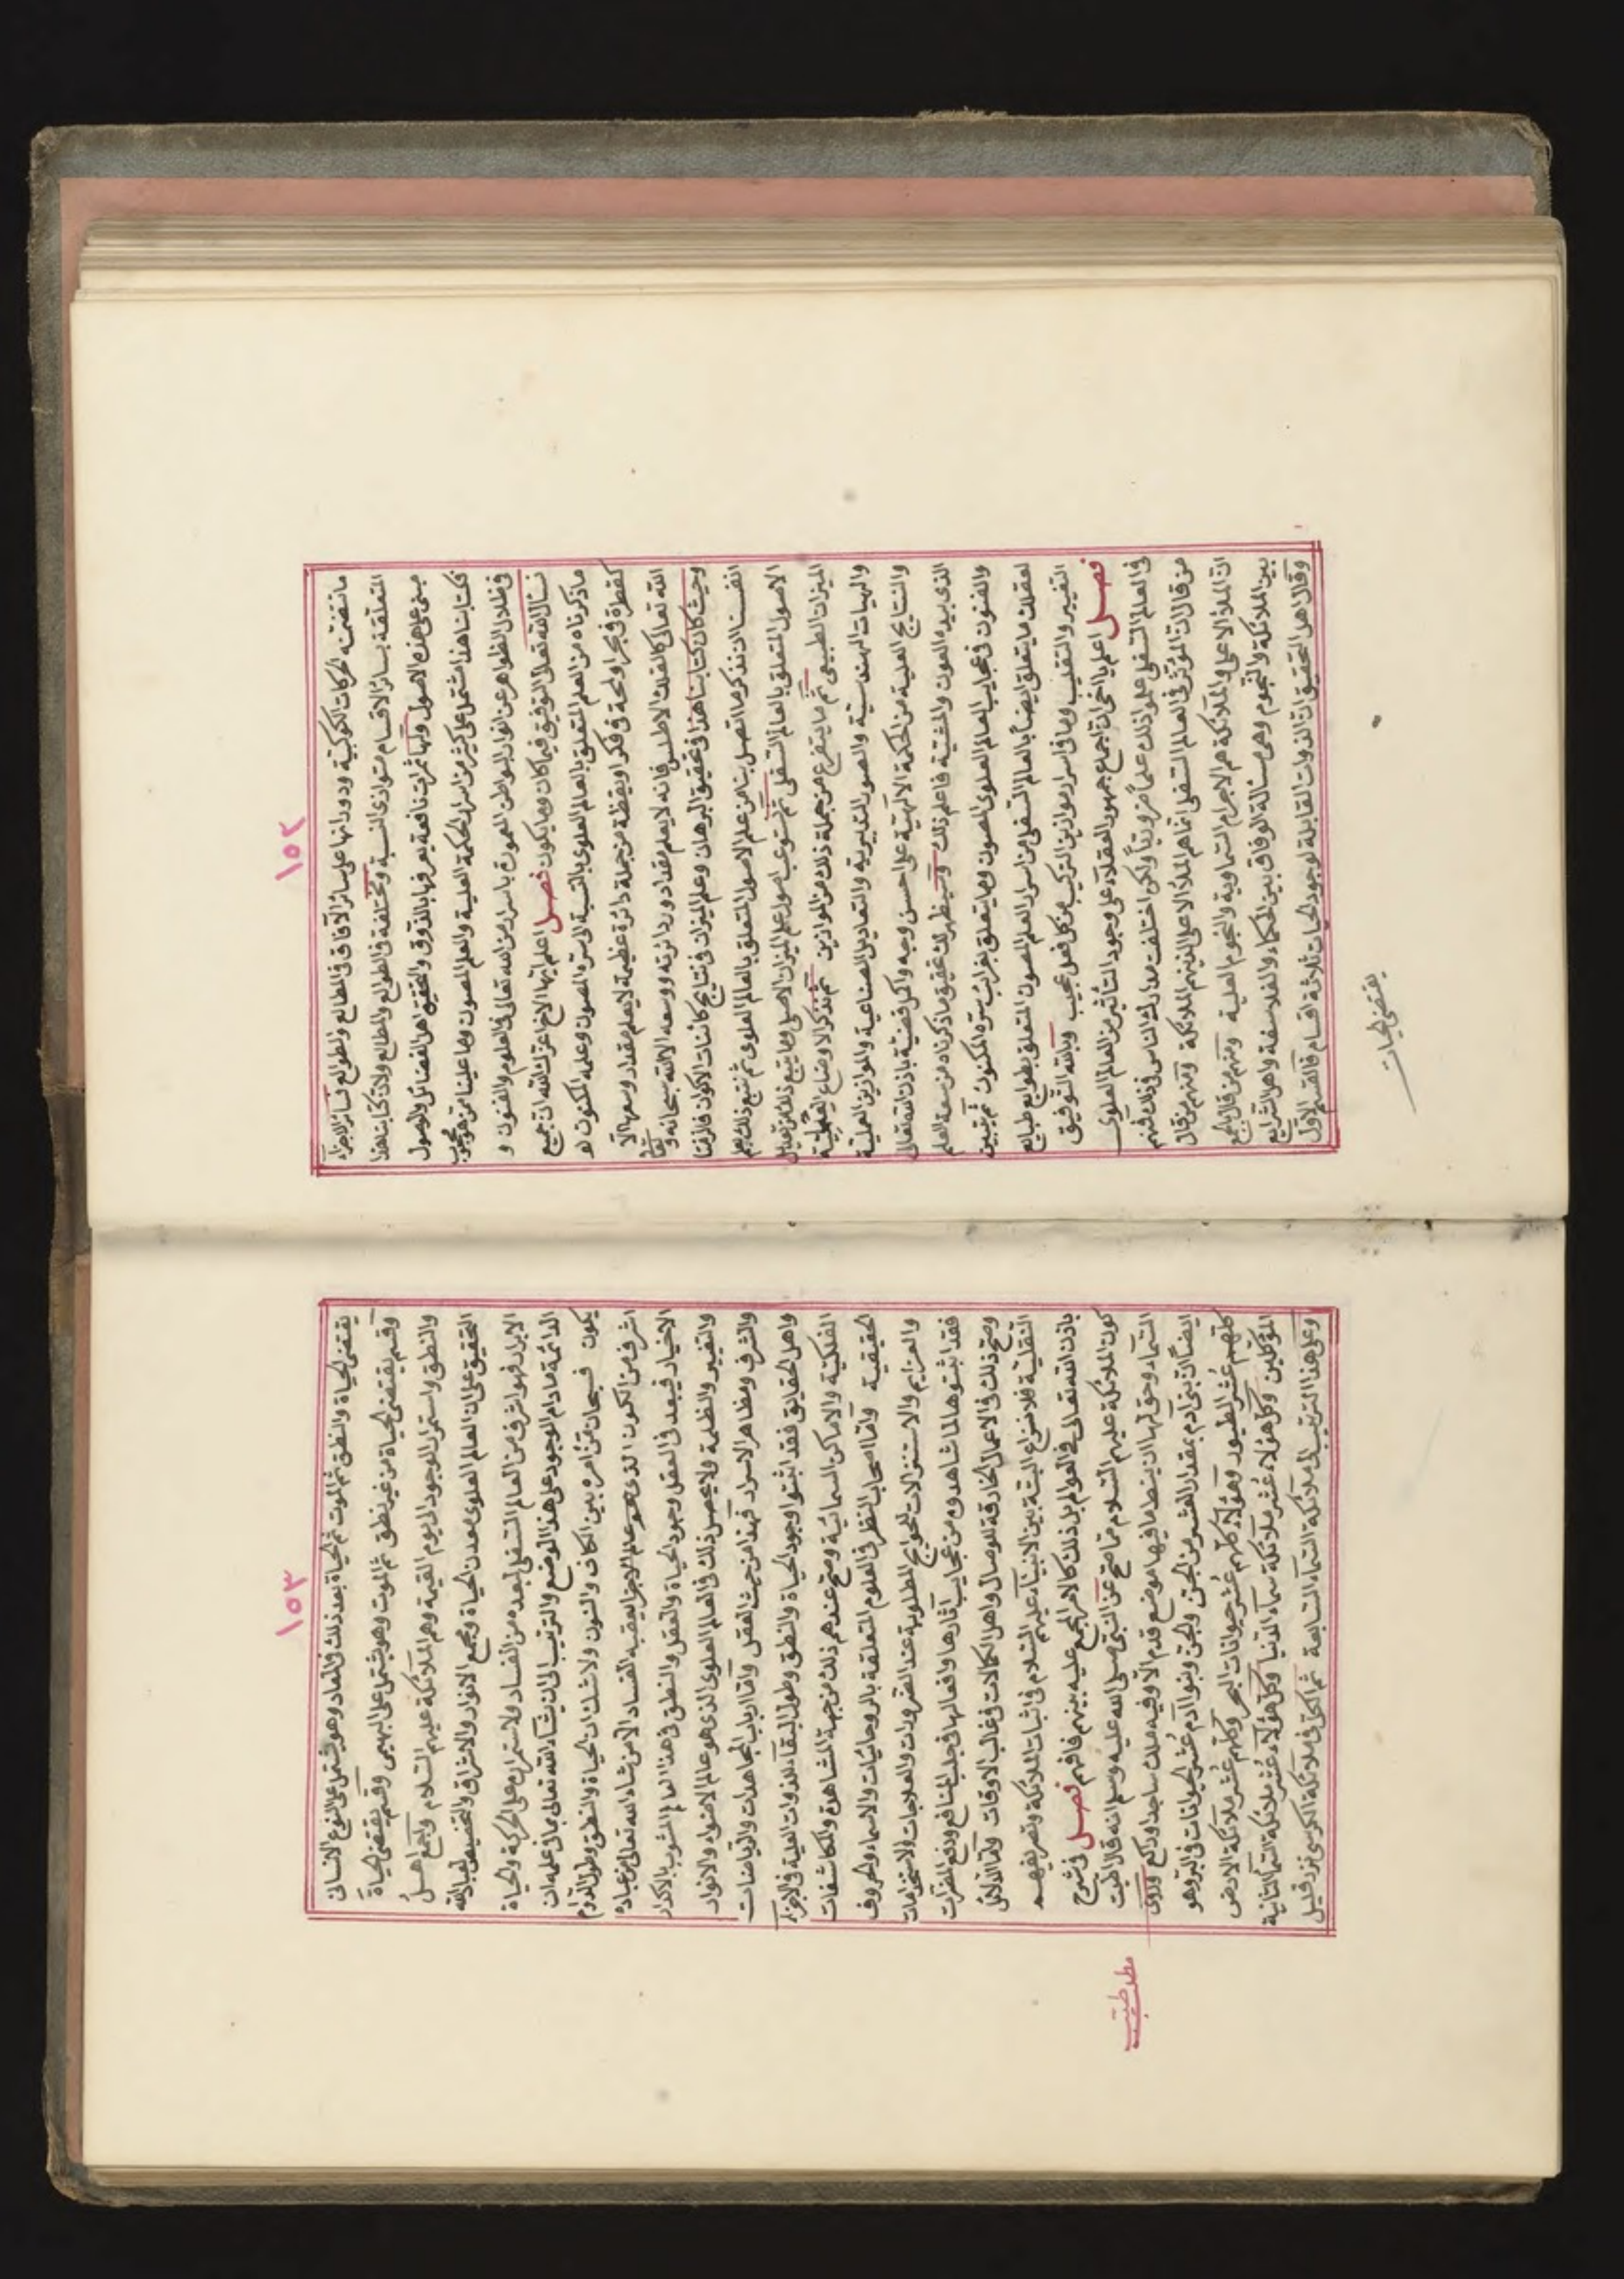 ١٥٢
ما تضمنته الحركات الكوكبية ودورانها على سائر الآفاق فى المطالع والطوالع
المتعلقة بسائر الاقسام متوازى النسبة ومختلفة فى الطوالع والمطالع ولان كتابنا هذا
مبنى على هذه الاصول ولها ثمرات نافعة يعرفها بالذوق والتحقيق اهل الفضائل والوصول
فكتابنا هذا اشتمل على كثير من اسرار الحكمة العلية والعلم المصون وما علينا من هو
فى ظلال الظواهر عن انوار البواطن المعمورة باسرار من الله تعالى فى العلوم والفنون و
نسأل الله تعالى التوفيق فيما كان وما يكون فصل اعلم ايها الاخ اعزك الله ان جميع
ما ذكرناه من العلم المتعلق بالعالم العلوى بالنسبة الى سره المصون وعلمه المكنون هو
كقطرة فى بحر او لمحة فى فكر او يقظة من جملة دائرة عظيمة لا يعلم مقدار وسعها الا
الله تعالى كالفلك الاطلس فانه لا يعلم مقدار دائرته ووسعه الا الله سبحانه وتعالى
وحيث كان كتابنا هذا فى تحقيق البرهان وعلم الميزان فى نتايج كائنات الاكوان فالزمنا
انفسنا ان نذكر ما اتصل بنا من علم الاصول المتعلق بالعالم العلوى ثم نتبع ذلك بعلم
الاصول المتعلق بالعالم السفلى ثم نستوعب اصول علم الميزان الاصلى وما يتبع ذلك من
الميزان الطبيعى ثم ما يتفرع من جملة ذلك من الموازين ثم نذكر الاوضاع
والهيات الهندسية والصور التدبيرية والتعاديل الصناعية والموازين العملية
والنتايج العلية من الحكمة الالهية على احسن وجه واكمل قضية باذن الله تعالى
الذى بيده العون والمشية فاعلم ذلك وسيظهر لك تحقيق ما ذكرناه من سعة العلم
والفنون فى عجايب العالم العلوى المصون وما يتعلق بغرائب سره المكنون ثم يتبين
لعقلك ما يتعلق ايضا بالعالم السفلى من اسرار العلم المصون المتعلق بطوايع طبايع
التغيير والتقليب وما فى اسرار موازين التركيب من كل فعل عجيب وبالله التوفيق
فصل اعلم يا اخى ان اجماع جمهور العقلاء على وجود التأثير من العالم العلوى
فى العالم السفلى علموا ذلك علما مرويا ولكن اختلفت مدارك الناس فى ذلك فمنهم
من قال ان المؤثر فى العالم السفلى انما هم الملأ الاعلى الذينهم الملائكة ومنهم من قال
ان الملأ الاعلى والملائكة هم الاجرام السماوية والنجوم العلية ومنهم من قال بالجمع
بين الملائكة والنجوم وهى مسئالة الوفاق بين الحكماء والفلاسفة واهل الشرايع
وقال اهل التحقيق ان الذوات القابلة لوجود الحيات ثلاثة اقسام فالقسم الاول
يقتضى الحيات
١٥٣
يقتضى الحياة والنطق ثم الموت ثم الحياة بعد ذلك والمعاد وهو يشتمل على النوع الانسانى
وقسم يقتضى الحياة من غير نطق ثم الموت وهو يشتمل على البهيمى وقسم يقتضى الحياة
والنطق واستمرار الوجود الى يوم القيمة وهم الملائكة عليهم السلام واجمع اهل
التحقيق على ان العالم العلوى معدن الحياة ومجمع الانوار والاشراق والتخصيص لعباد الله
الابرار فهو اشرف من العالم السفلى لبعده من الفساد ولاستمراره على الحركة والحياة
الدائمة ما دام الوجود على هذا الوضع والترتيب الى ان يشاء الله تعالى بما فى علمه ان
يكون فسبحان من امره بين الكاف والنون ولا شك ان الحياة والنطق وطول الدوام
اشرف من الكون الذى هو عالم الاجزا يعقبه الفساد الا من شاء الله تعالى من عباده
الاخيار فيبعد فى العقل وجود الحياة والعقل والنطق فى هذا العالم المشوب بالاكدار
والتغيير والظلمة ولا يحصل ذلك فى العالم العلوى الذى هو عالم الاضواء والانوار
والشرف ومظاهر الاسرار فهذا من حيث العقل واما ارباب المجاهدات والرياضات
واهل الحقايق فقد اثبتوا وجود الحياة والنطق وطول البقاء للذوات العلية فى الاجزاء
الفلكية والاماكن السمائية وصح عندهم ذلك من جهة المشاهدة والمكاشفات
الحقيقية واما اصحاب النظر فى العلوم المتعلقة بالروحانيات والاسماء والحروف
والعزايم والاستنزالات لحوايج المطلوبة عند الضرورات والعلاجات والاستخدامات
فقد اثبتوها لما شاهدوه من عجايب آثارها وافعالها فى جلب المنافع ودفع المضرات
وصح ذلك فى الاعمال الخارقة للوصال واهل الكمالات فى غالب الاوقات واما الدلائل
النقلية فلا نزاع البتة بين الانبياء عليهم السلام فى اثبات الملائكة وتصريفهم
باذن الله تعالى فى العوالم بل ذلك كالامر المجمع عليه بينهم فافهم فصل فى شرح
كون الملائكة عليهم السلام مما صح عن النبى صلى الله عليه وسلم انه قال اطت
السماء وحق لها ان ينط ما فيها موضع قدم الا وفيه ملك ساجد او راكع وروى
ايضا ان بنى آدم بمقدار العشر من الجن والجن وبنو آدم عُشر الحيوانات فى البر وهو
كلهم عُشر الطيور وهؤلاء كلهم عُشر حيوانات البحر وكلهم عُشر ملائكة الارض
الموكلين وكل هؤلاء عُشر ملائكة سماء الدنيا وكل هؤلاء عُشر ملائكة السماء الثانية
وعلى هذا الترتيب الى ملائكة السماء السابعة ثم الكل فى ملائكة الكرسى نزر قليل
مطلب طيب